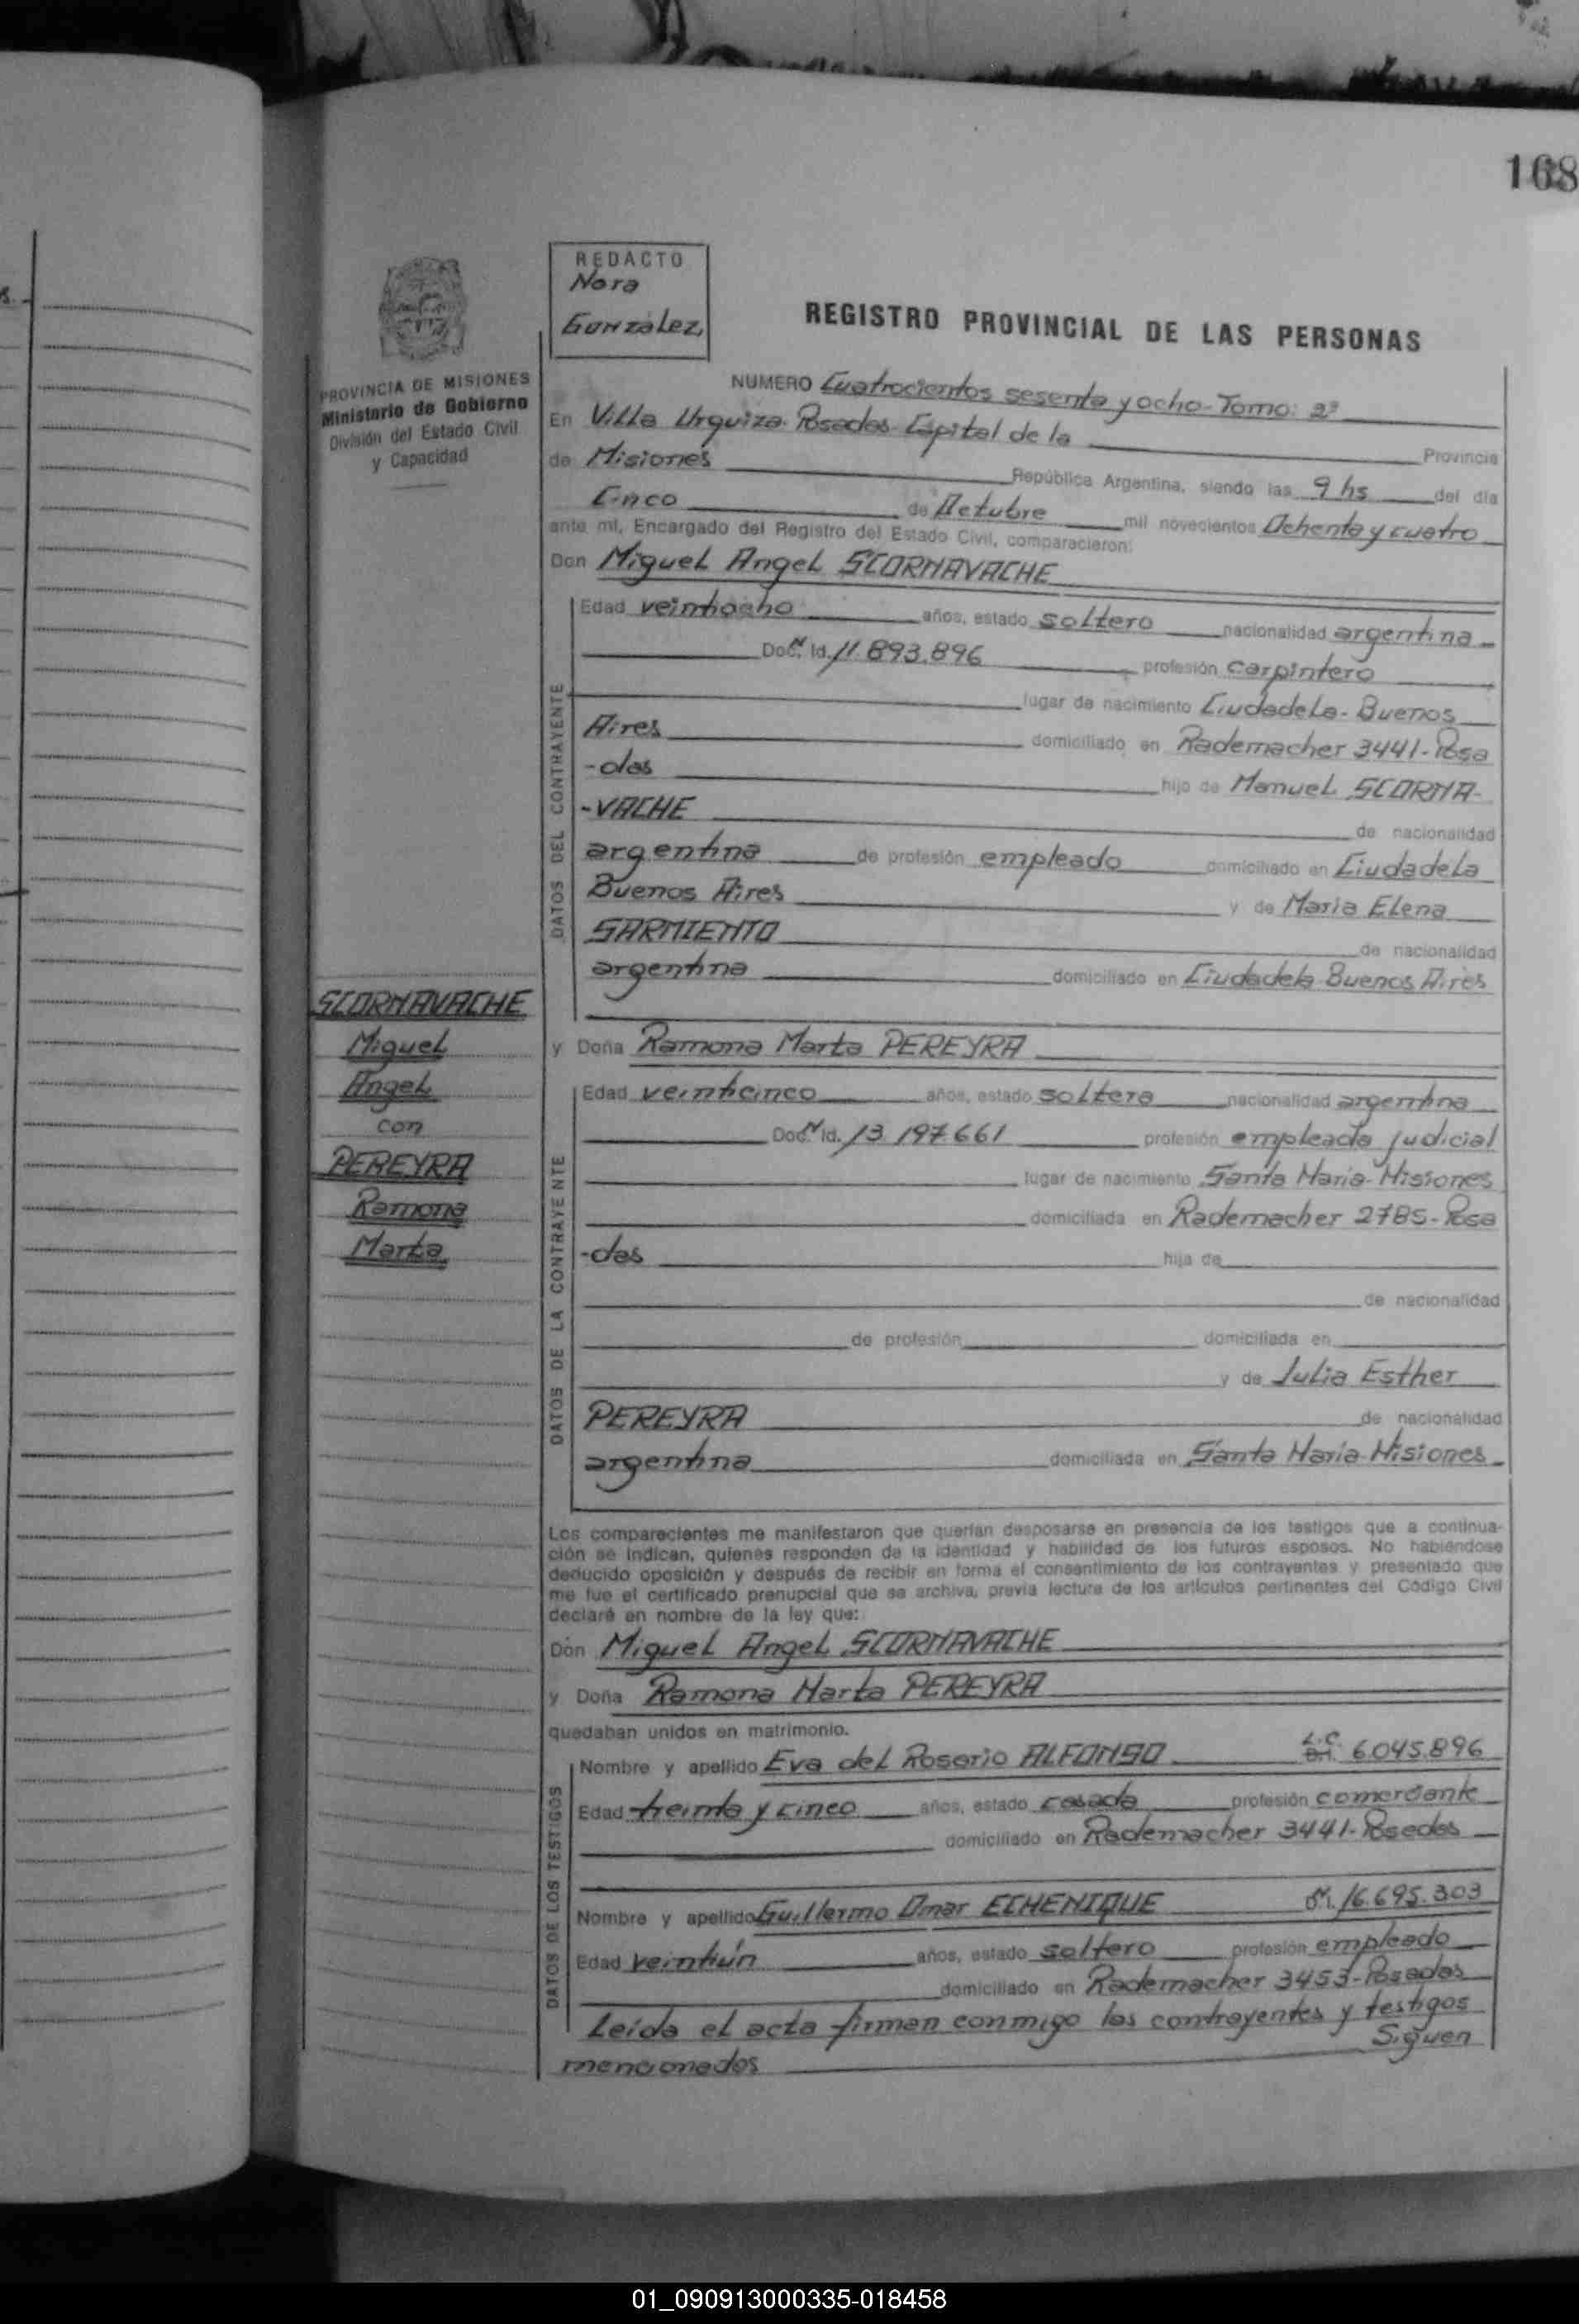 168
REDACTO
Nora
Gonzalez,
REGISTRO PROVINCIAL DE LAS PERSONAS
PROVINCIA DE MISIONES
Ministerio de Gobierno
División del Estado Civil
y Capacidad
NUMERO Cuatrocientos sesenta y ocho - Tomo: 2º
En Villa Urquiza. Posadas Capital de la Provincia
de Misiones República Argentina, siendo las 9 hs del día
Cinco de Octubre mil novecientos Ochenta y cuatro
ante mí, Encargado del Registro del Estado Civil, comparacieron:
Don Miguel Angel SCORNAVACHE
DATOS DEL CONTRAYENTE
Edad veintiocho años, estado soltero nacionalidad argentina
Doc. Id. N 11.893.896 profesión carpintero
lugar de nacimiento Ciudadela - Buenos
Aires domiciliado en Rademacher 3441 - Posa
-das hijo de Manuel SCORNA-
-VACHE de nacionalidad
argentina de profesión empleado domiciliado en Ciudadela
Buenos Aires y de Maria Elena
SARMIENTO de nacionalidad
argentina domiciliado en Ciudadela Buenos Aires
SCORNAVACHE
Miguel
Angel
con
PEREYRA
Ramona
Marta
y Doña Ramona Marta PEREYRA
DATOS DE LA CONTRAYENTE
Edad veinticinco años, estado soltera nacionalidad argentina
Doc. N Id. 13.197.661 profesión empleada judicial
lugar de nacimiento Santa Maria - Misiones
domiciliada en Rademacher 2785 - Posa
-das hija de
de nacionalidad
de profesión domiciliada en
y de Julia Esther
PEREYRA de nacionalidad
argentina domiciliada en Santa Maria - Misiones
Los comparecientes me manifestaron que querían desposarse en presencia de los testigos que a continua-
ción se indican, quienes responden de la identidad y habilidad de los futuros esposos. No habiéndose
deducido oposición y después de recibir en forma el consentimiento de los contrayentes y presentado que
me fue el certificado prenupcial que se archiva, previa lectura de los artículos pertinentes del Código Civil
declaré en nombre de la ley que:
Don Miguel Angel SCORNAVACHE
y Doña Ramona Marta PEREYRA
quedaban unidos en matrimonio.
DATOS DE LOS TESTIGOS
Nombre y apellido Eva del Rosario ALFONSO L.C. 6.045.896
Edad treinta y cinco años, estado casada profesión comerciante
domiciliado en Rademacher 3441 - Posadas
Nombre y apellido Guillermo Omar ECHENIQUE 16.695.303
Edad veintiún años, estado soltero profesión empleado
domiciliado en Rademacher 3453 - Posadas
Leída el acta firman conmigo los contrayentes y testigos
mencionados Siguen
01_090913000335-018458